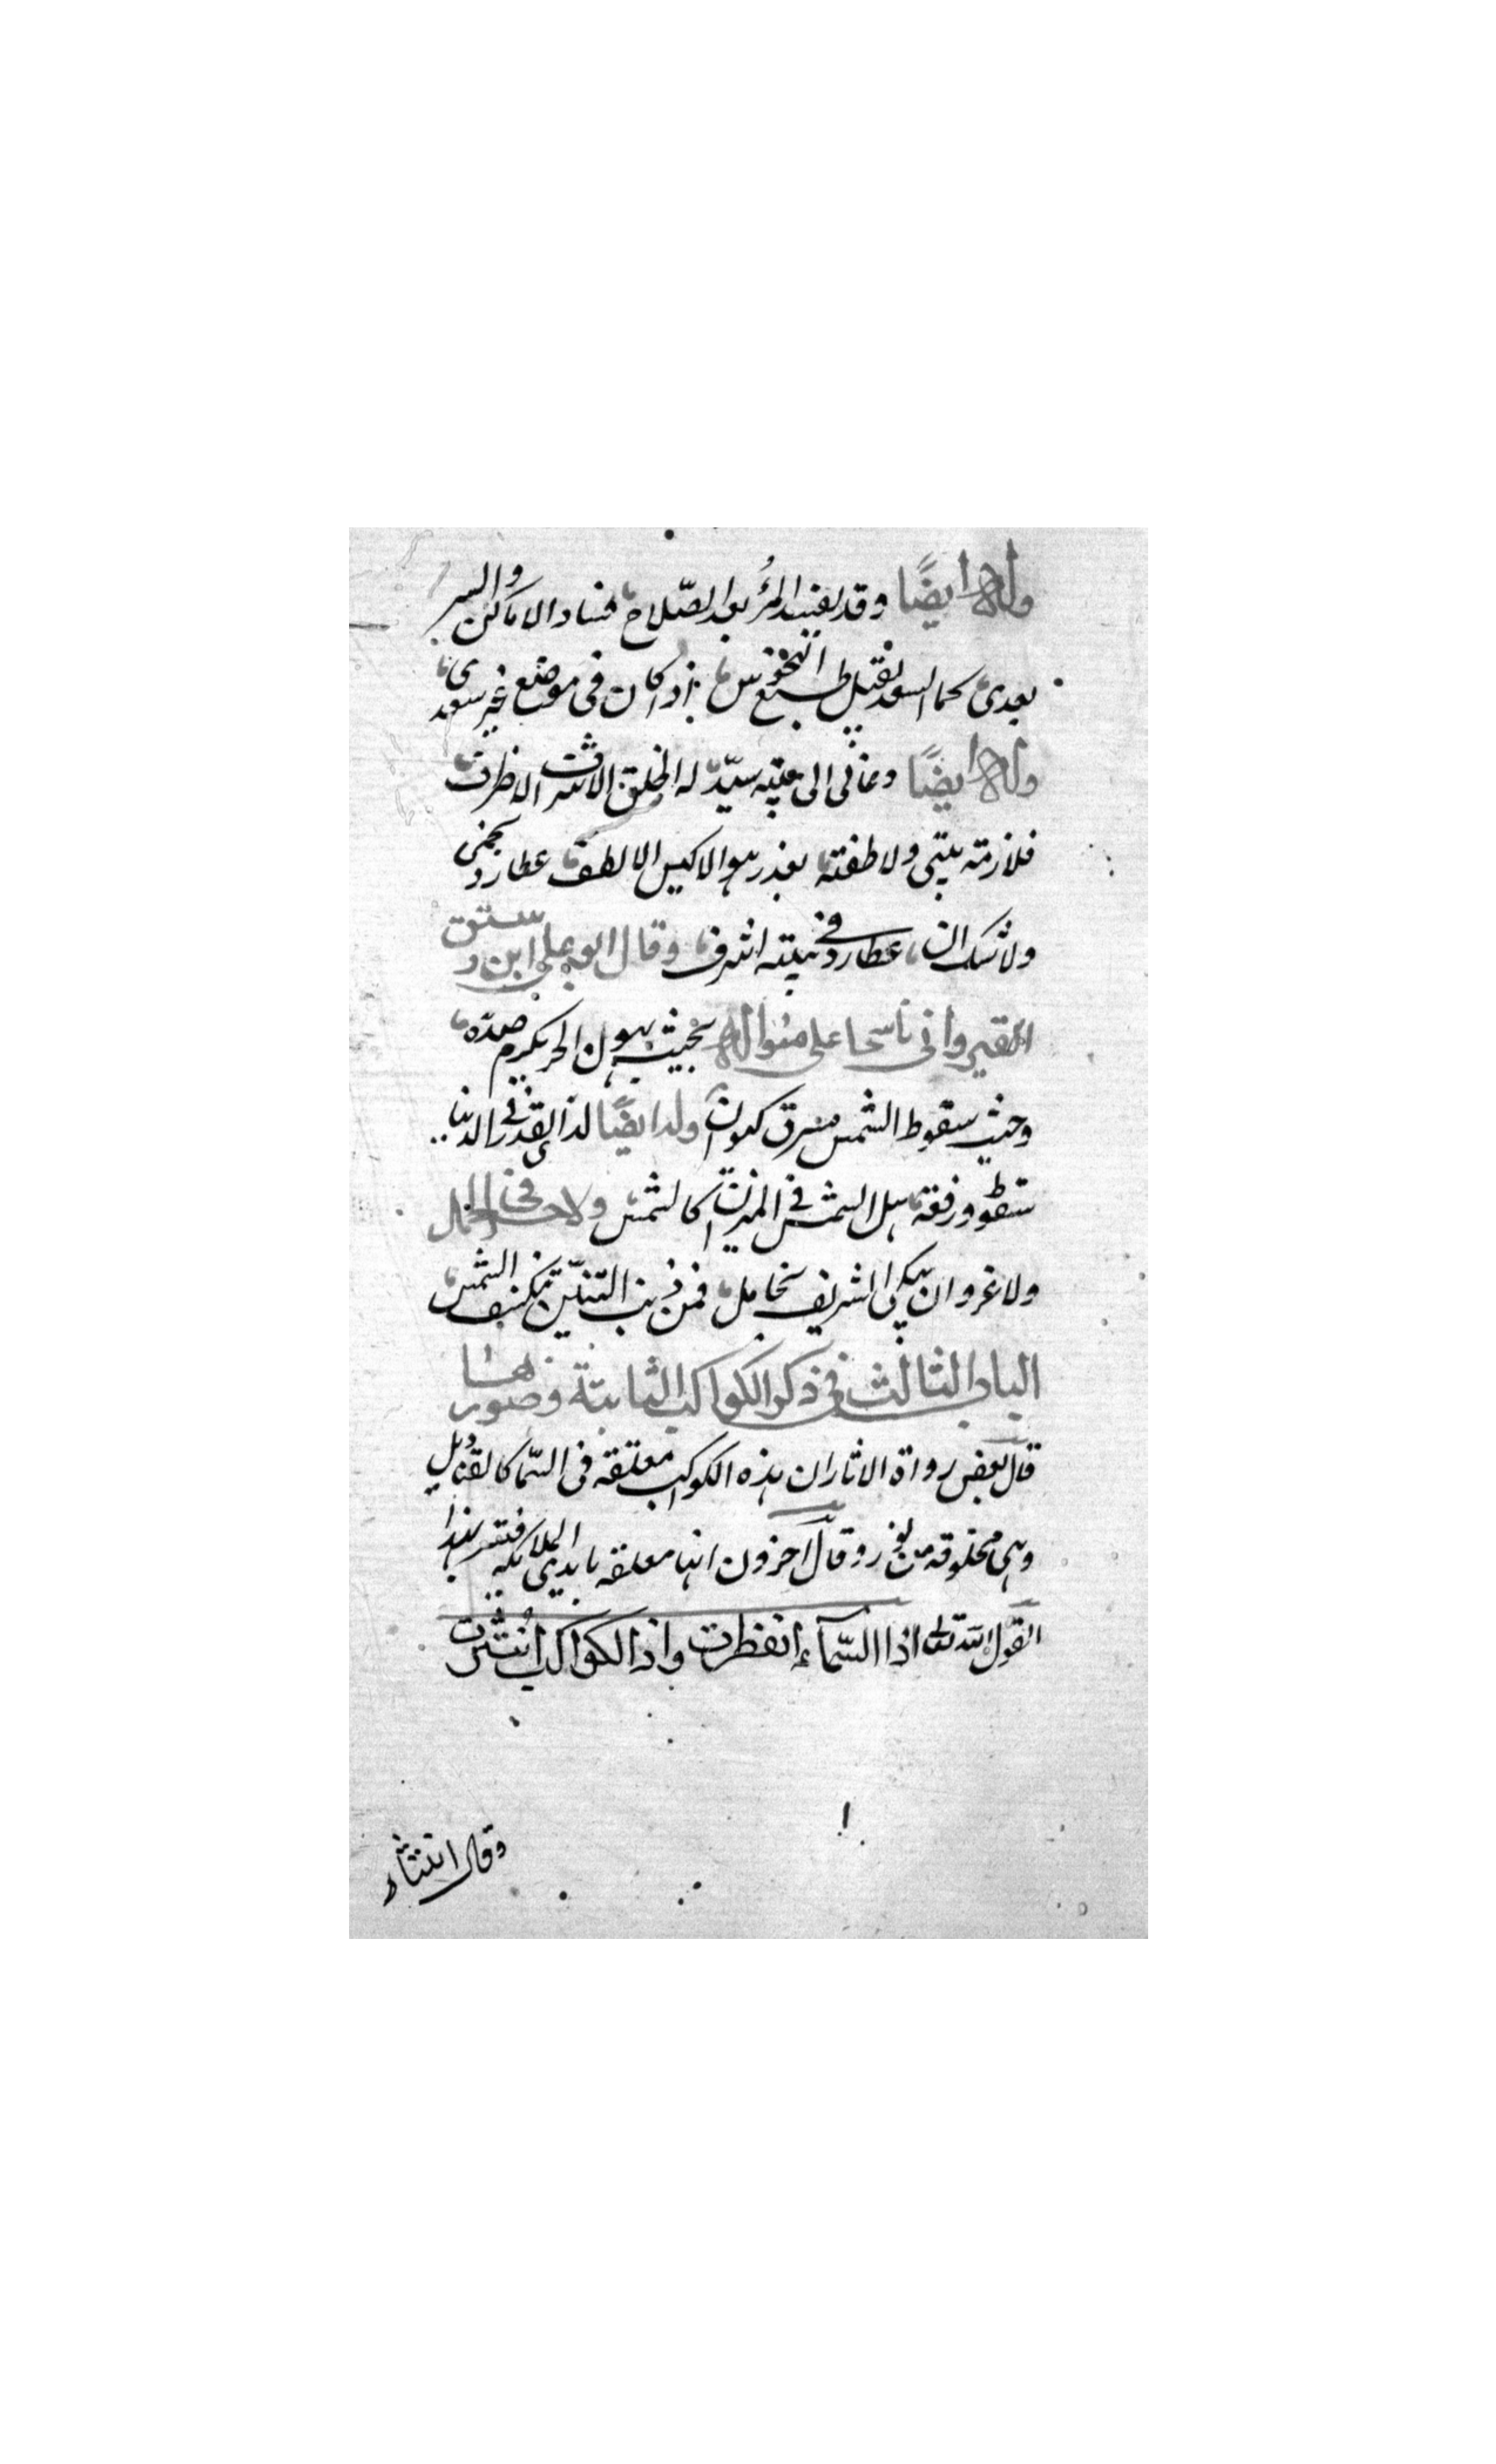 وله ايضًا وقد يفسد المرُ بعد الصّلاح فساد الاماكن والسر
يعدى كما السعد يقبل طبع النحوس اذا كان فى موضع غير سعدى
وله ايضًا دعانى الى بيته سيّد له الخلق الاشرف الاظرف
فلازمته بيتى ولاطفته بعذر هو الاكيس الالطف عطارد نجمى
ولا شك ان عطارد فى بيته اشرف وقال ابو على ابن رستق
القيروانى ناسجا على منواله بحيث يهون الحر يكرم ضده
وحيث سقوط الشمس شرق كيوان وله ايضًا لذى القدر فى الدنيا
سقوط ورفقة هل الشمس فى الميزان كالشمس ولاخر فى الحمال
ولا غرو ان يبلى الشريف بخامل فمن ذنب التنّين تنكسف الشمس
الباب الثالث فى ذكر الكواكب الثابتة وصورها
قال بعض رواة الاثار ان هذه الكواكب معلقة فى السّما كالقناديل
وهى مخلوقة من نور وقال آخرون انها معلقة بايدى الملائكة فتفسير هذا
القول الله تعالى اذا السّمآء انفطرت واذا الكواكب انتثرت
وقال انتثار